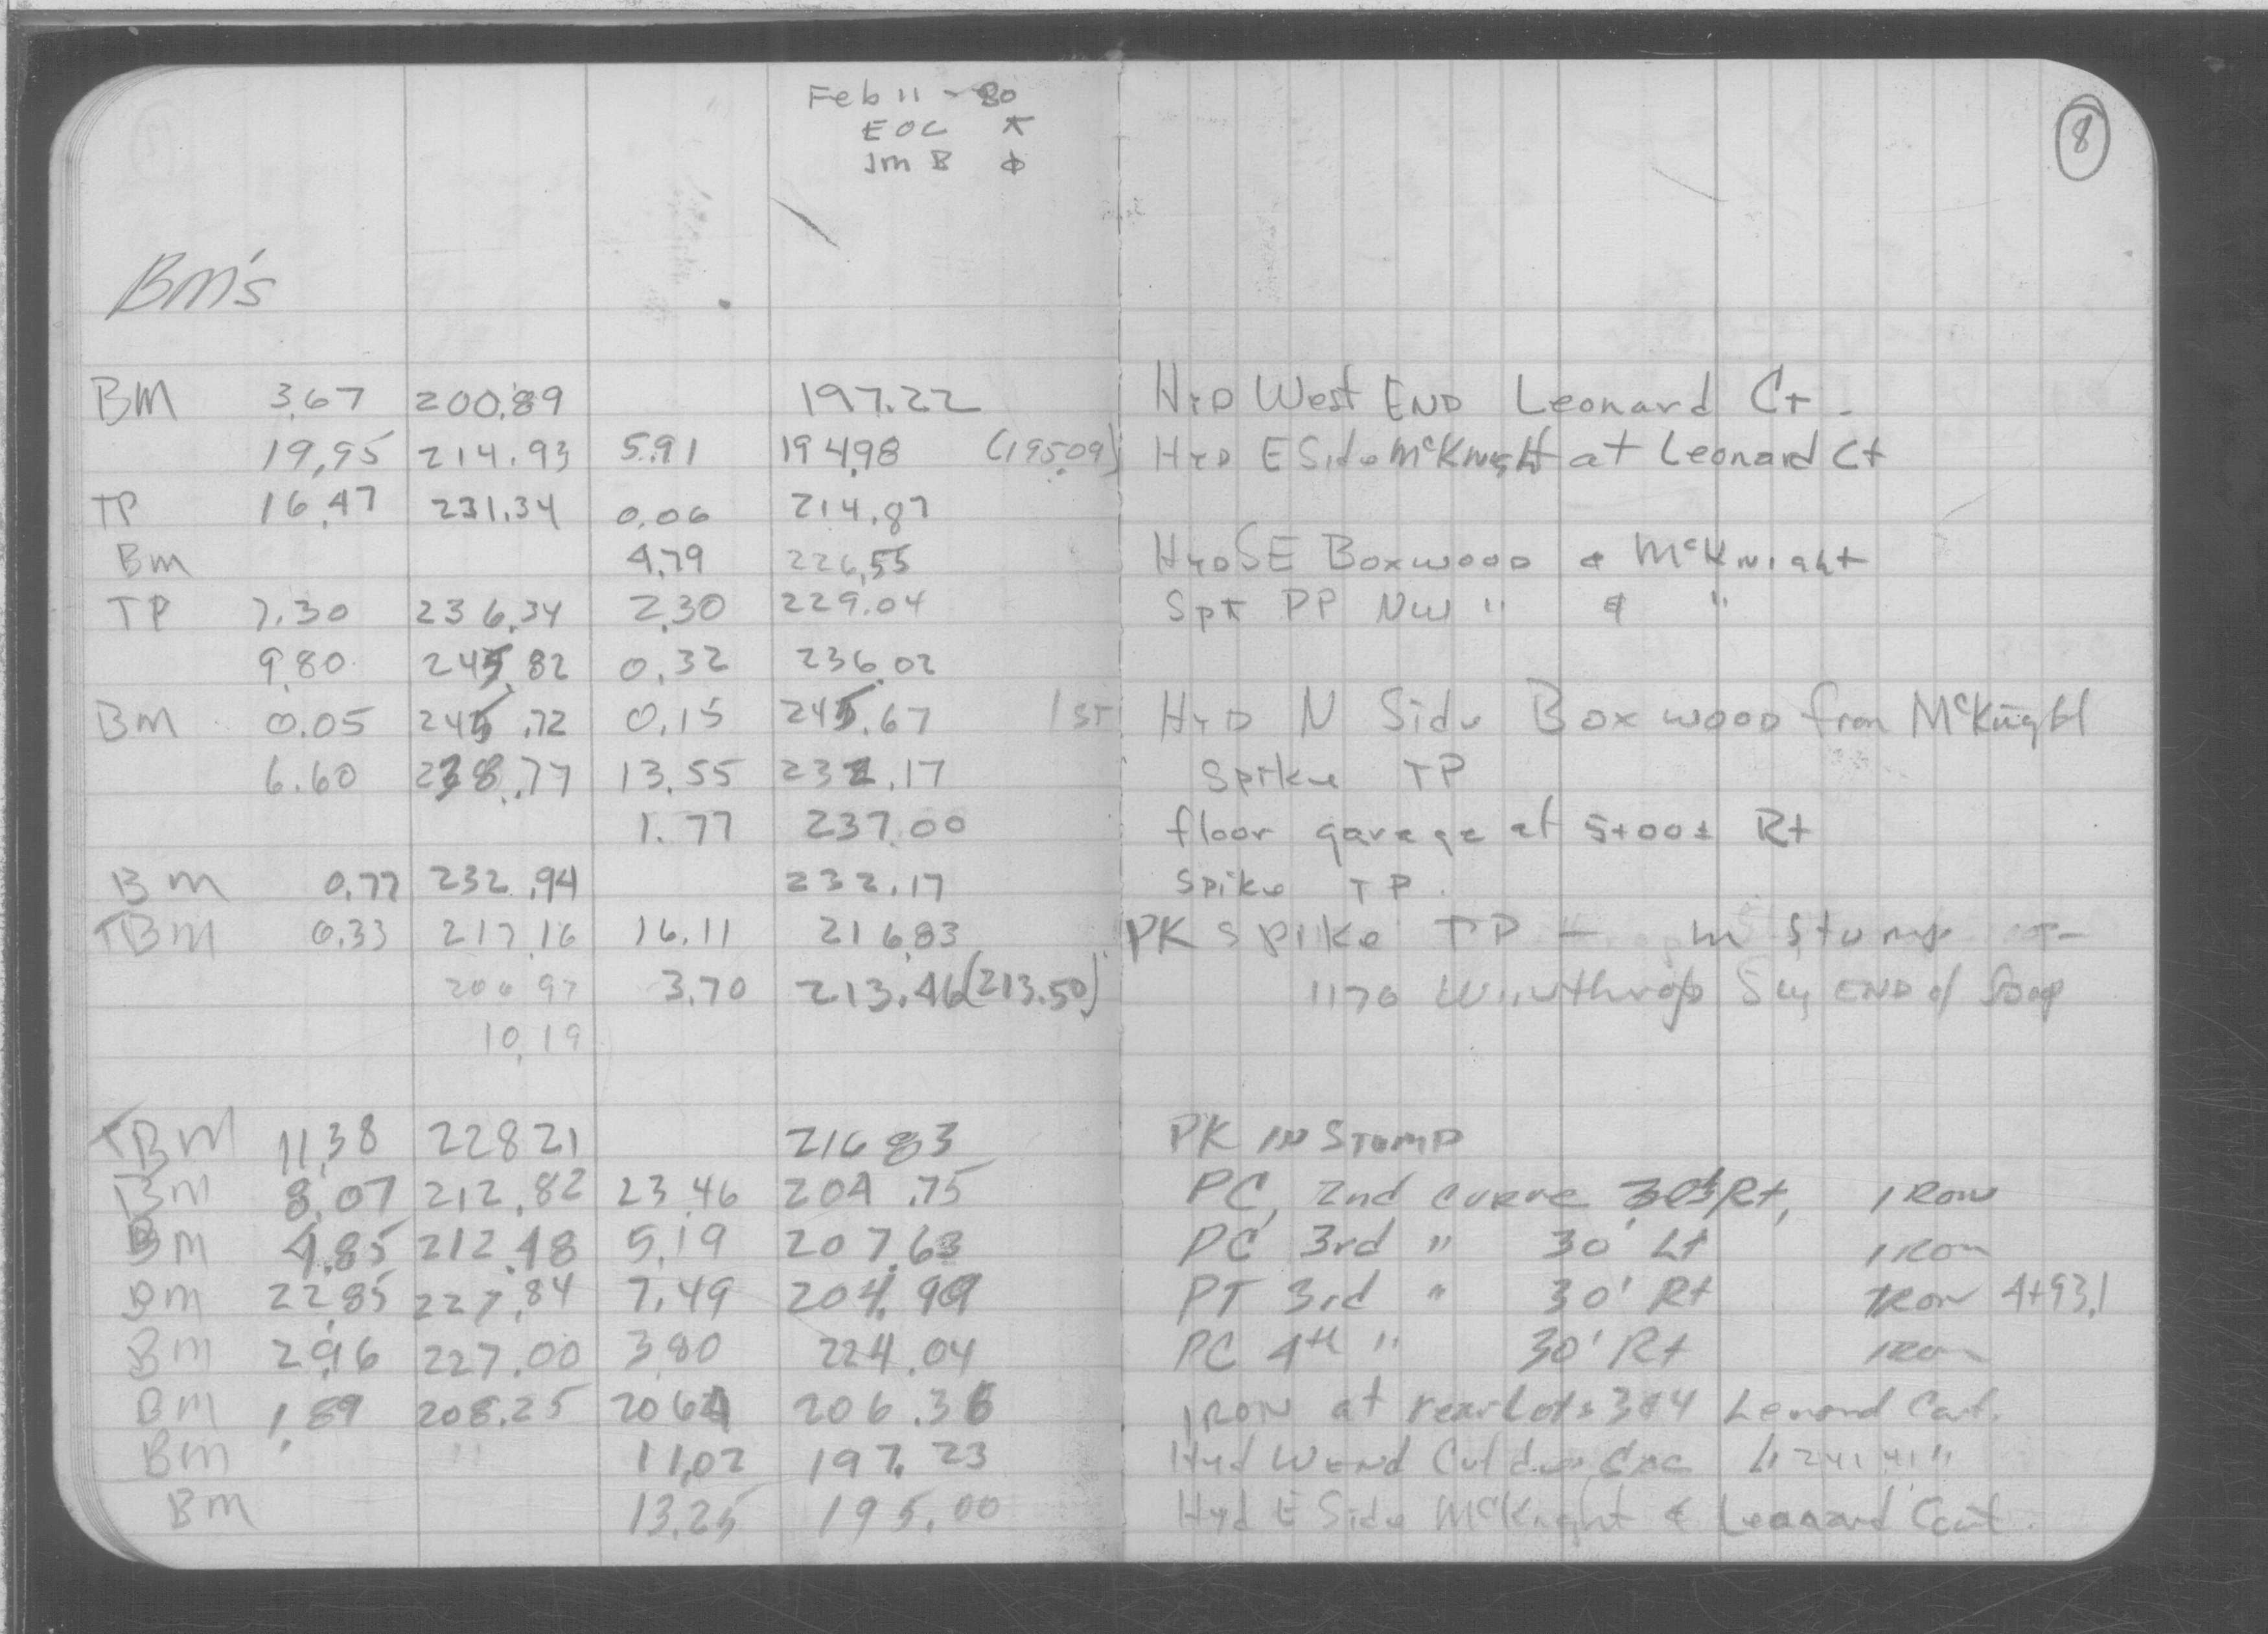 Feb 11 - 80
EOC ⊼
JmB ɸ
8
BM's
BM 3.67 200.89 197.22 HyD West END Leonard Ct.
19.95 214.93 5.91 194.98 (195.09) HyD E Side McKnight at Leonard Ct
TP 16.47 231.34 0.06 214.87
Bm 4.79 226.55 HyD SE Boxwood & McKnight
TP 7.30 236.34 2.30 229.04 Spk PP NW " & "
9.80 245.82 0.32 236.02
Bm 0.05 245.72 0.15 245.67 1st HyD N Side Boxwood from McKnight
6.60 238.77 13.55 232.17 Spike TP
1.77 237.00 floor garage at 5+00± Rt
Bm 0.77 232.94 232.17 Spike TP
TBm 0.33 217.16 16.11 216.83 PK Spike TP - in Stump
206 97 3.70 213.46 (213.50) 1170 Winthrop Sly END of
10.19
TBM 11.38 228 21 216 83 PK IN STUMP
Bm 8.07 212.82 23.46 204.75 PC, 2nd curve 30' Rt, IRon
Bm 4.85 212.48 5.19 207.63 PC 3rd " 30' Lt IRon
Bm 22.85 227.84 7.49 204.99 PT 3rd " 30' Rt IRon 4+93.1
Bm 2.96 227.00 3.80 224.04 PC 4th " 30' Rt IRon
Bm 1.89 208.25 20 64 206.36 IRON at rear Lots 3&4 Lenord Cort.
Bm " 11.02 197.23 Hyd W END Cul de Sac "
Bm 13.25 195.00 Hyd E Side McKnight & Leanard Cort.